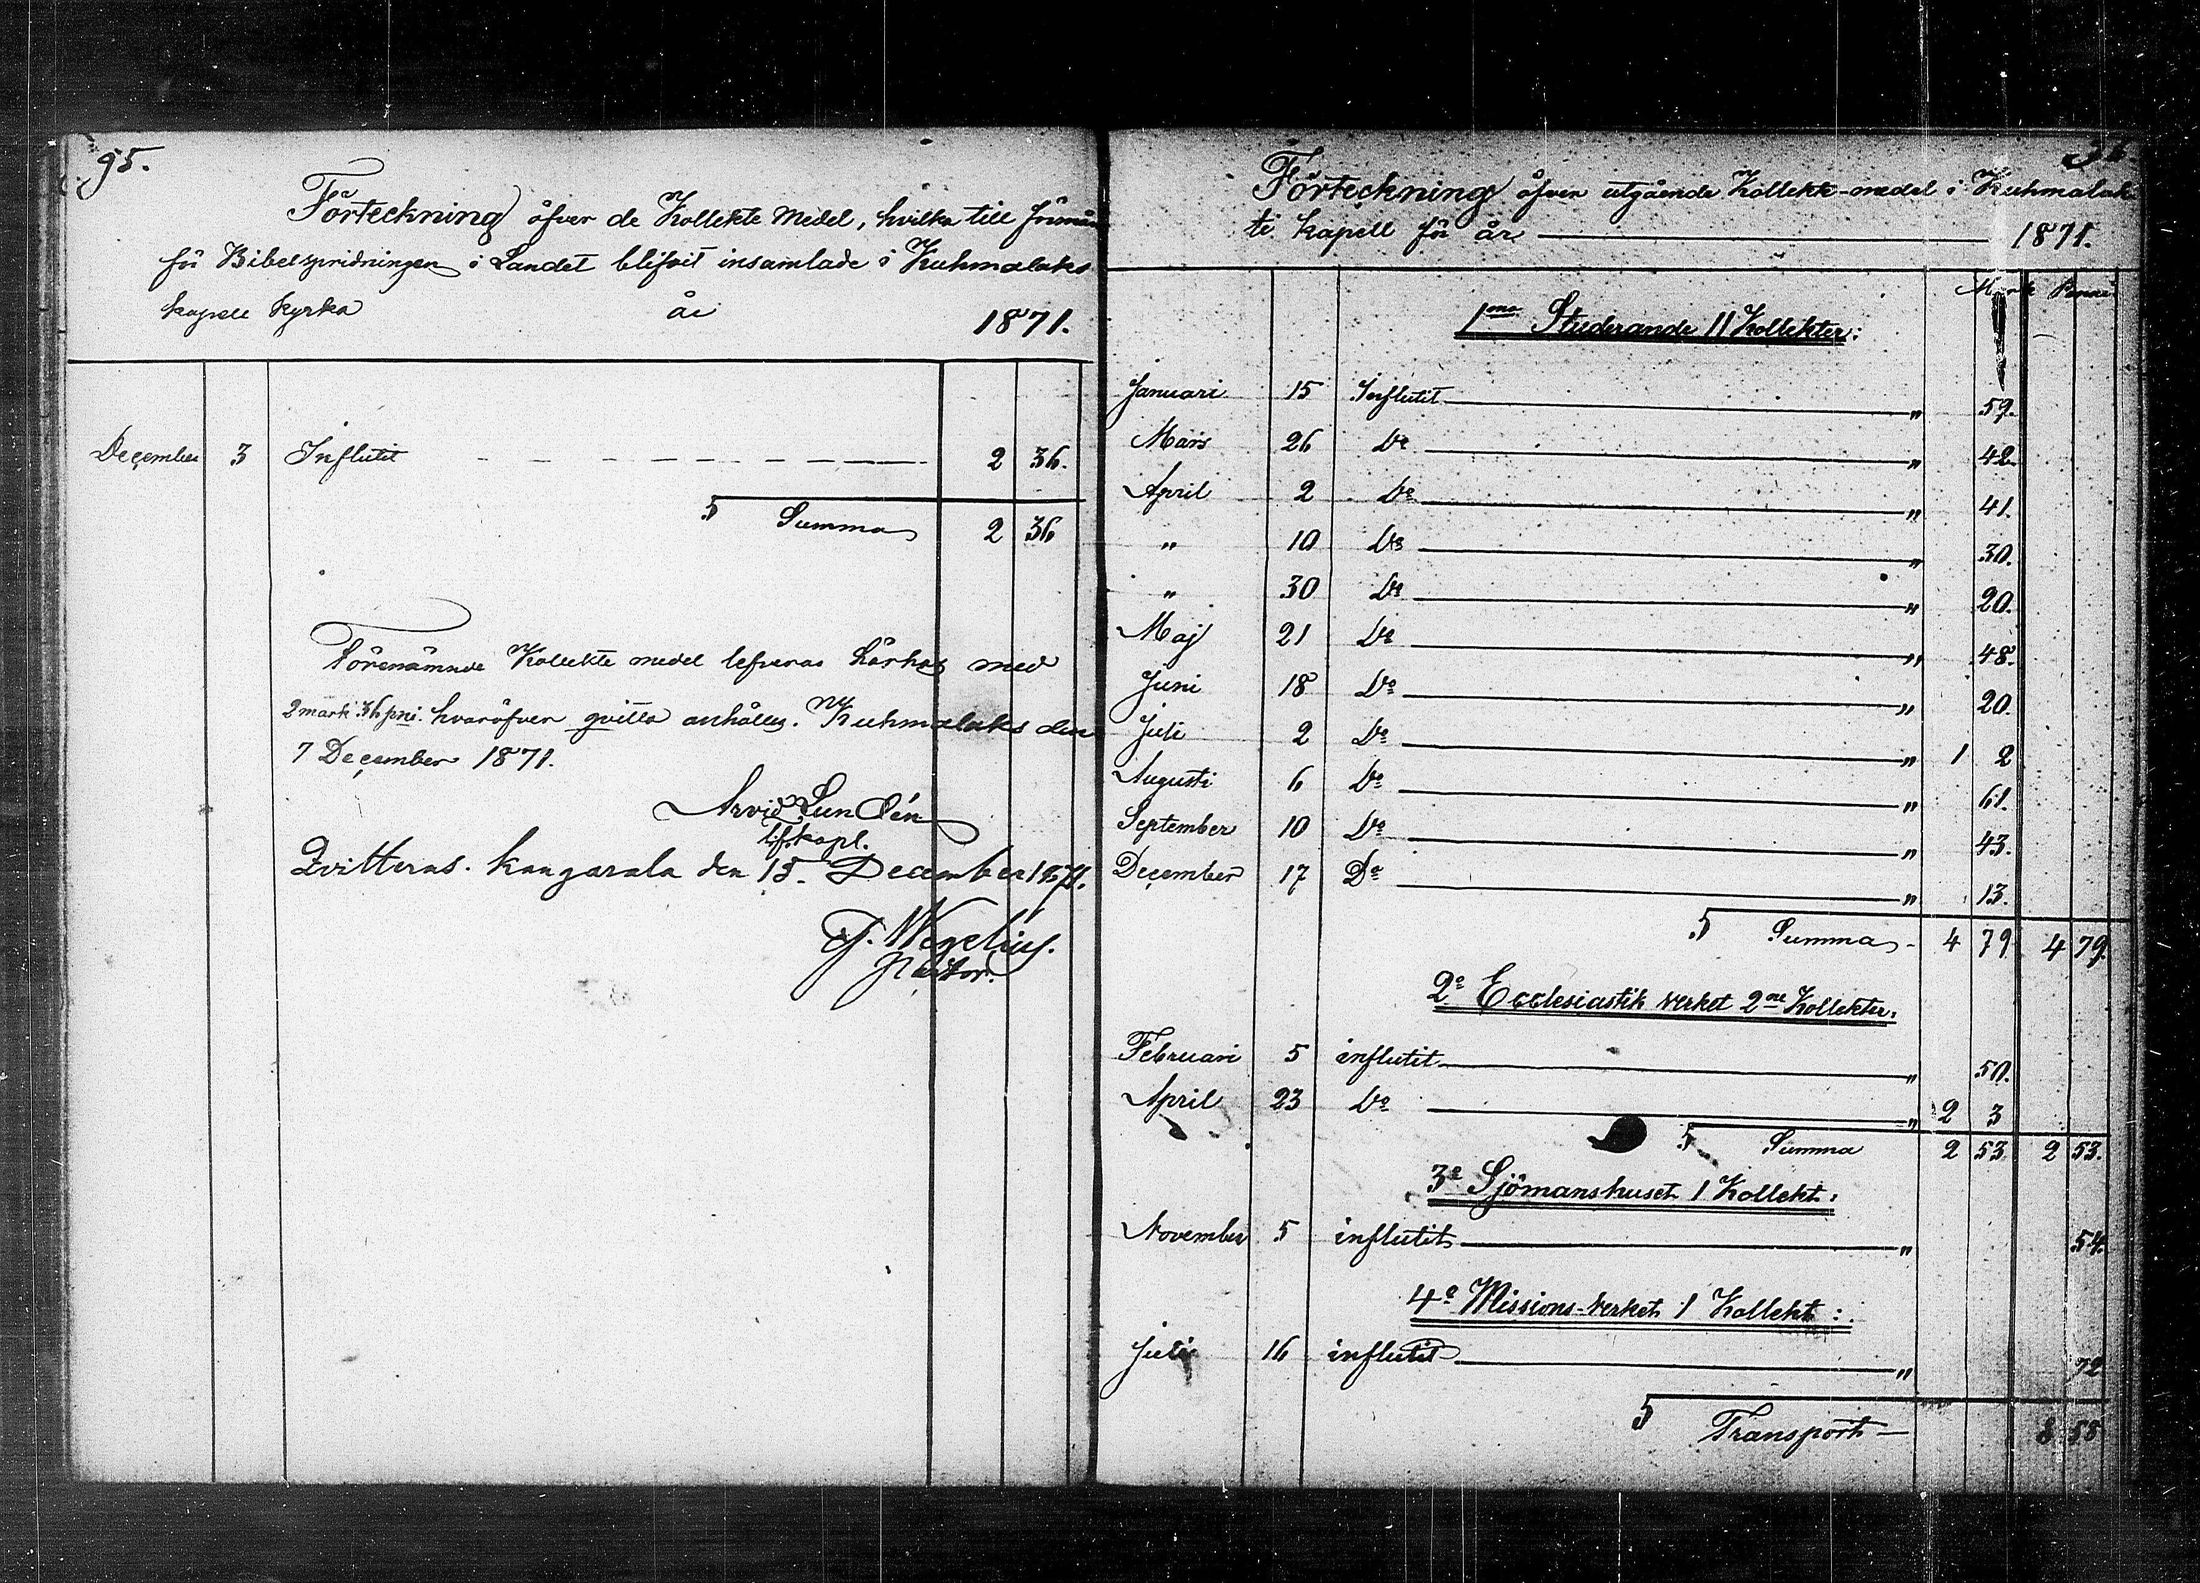 95.
Förteckning öfver de Kollekte Medel, hvilka till främ
för Bibelspridningen i Landet blifvit insamlade i Kuhmalaks
kapell kyrka år 1871.
December 3 Influtit 2 36.
S Summa 2 36
Förenämnde Kollekte medel lefveras härhos med
2 mark 36 pni. hvaröfver qvitto anhålles. Kuhmalaks den
7 December 1871.
Arvid Lundén
v.f. kapl.
Qvitteras. Kangasala den 15. December 1871.
Wegelius.
Pastor.
Förteckning öfver utgående Kollekte-medel i Kuhmalak
ti kapell för år 1871.
Mark Penni
1mo Studerande 11 Kollekter:
Januari 15 Influtit " 59.
Mars 26 Do " 42.
April 2 Do " 41.
" 10 Do " 30.
" 30 Do " 20.
Maj 21 Do " 48.
Juni 18 Do " 20.
Juli 2 Do " 1 2
Augusti 6 Do " 61.
September 10 Do " 43.
December 17 Do " 13.
S Summa - 4 79 4 79.
2o Ecclesiastik verket 2ne Kollekter.
Februari 5 influtit " 50.
April 23 Do " 2 3
S Summa 2 53 2 53.
3o Sjömanshuset 1 Kollekt:
November 5 influtit " 54.
4o Missions-Verket 1 Kollekt:
Juli 16 influtit " 72
S Transport — 8 58